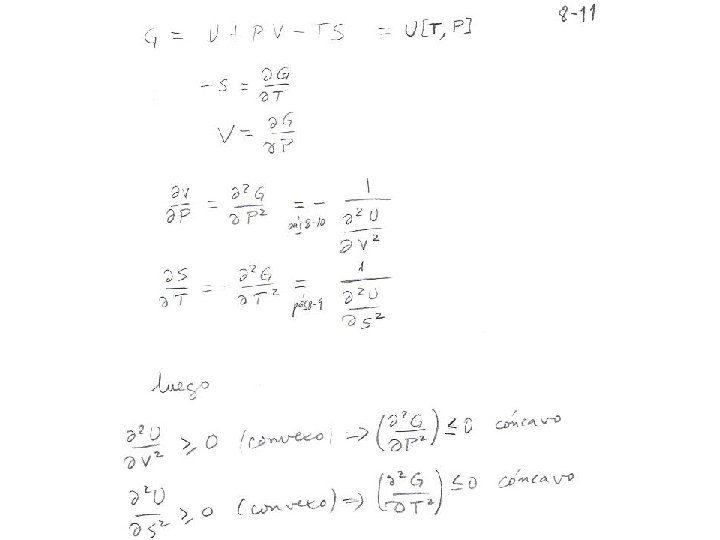 8-11
G = U + PV - TS = U[T, P]
-S = ∂G/∂T
V = ∂G/∂P
∂V/∂P = ∂²G/∂P² = - 1/(∂²U/∂V²) pág 8-10
∂S/∂T = - ∂²G/∂T² = 1/(∂²U/∂S²) pág 8-9
luego
∂²U/∂V² ≥ 0 (convexo) ⇒ (∂²G/∂P²) ≤ 0 cóncavo
∂²U/∂S² ≥ 0 (convexo) ⇒ (∂²G/∂T²) ≤ 0 cóncavo